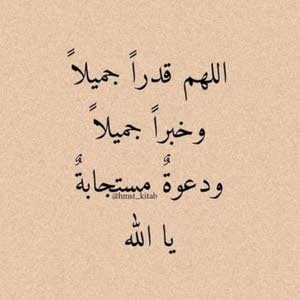 اللهم قدراً جميلاً
وخبراً جميلاً
ودعوةٌ مستجابةٌ
@hmst_kitab
يا الله